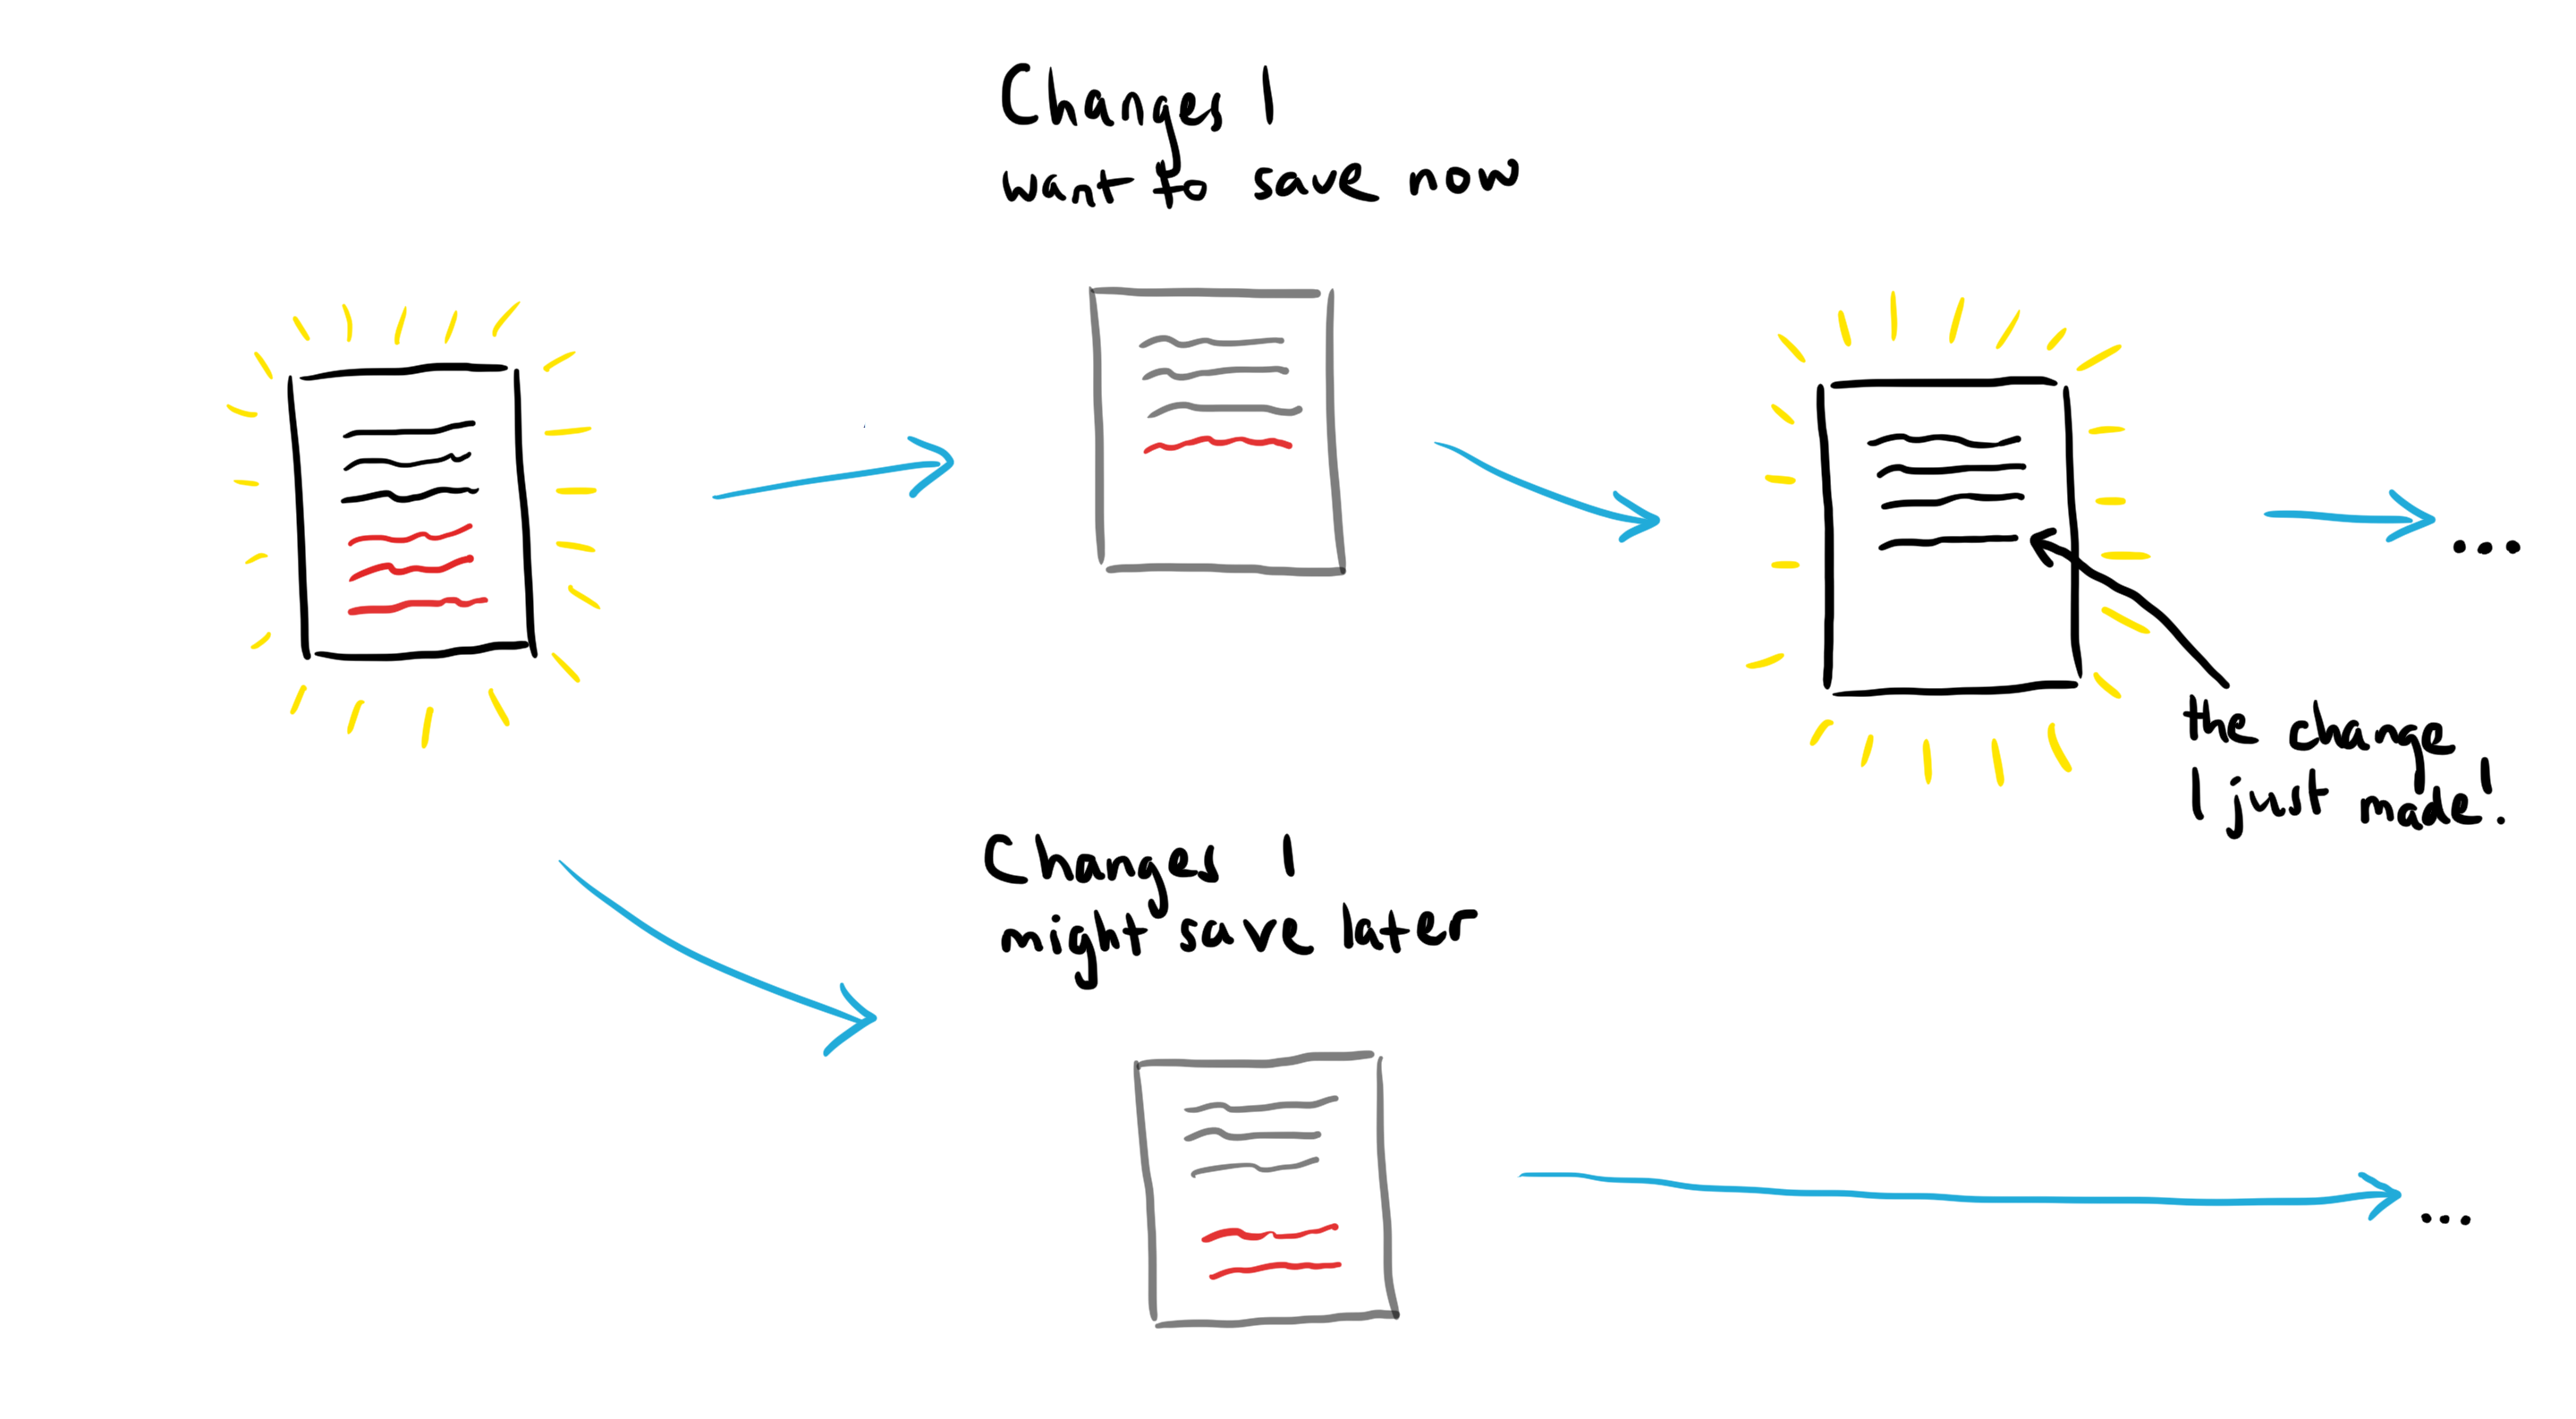 Changes I
want to save now
...
the change
I just made!
Changes I
might save later
...